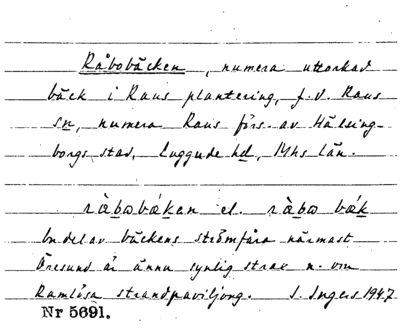 Råbobäcken, numera uttorkad
bäck i Raus plantering, f.d. Raus
sn, numera Raus förs. av Hälsing-
borgs stad, Luggude hd, Mhs län.
ràbωbákan el. ràbω bák
En del av bäckens strömfåra närmast
Öresund är ännu synlig strax n. om
Ramlösa strandpaviljong. I. Ingers 1947
Nr 5691.